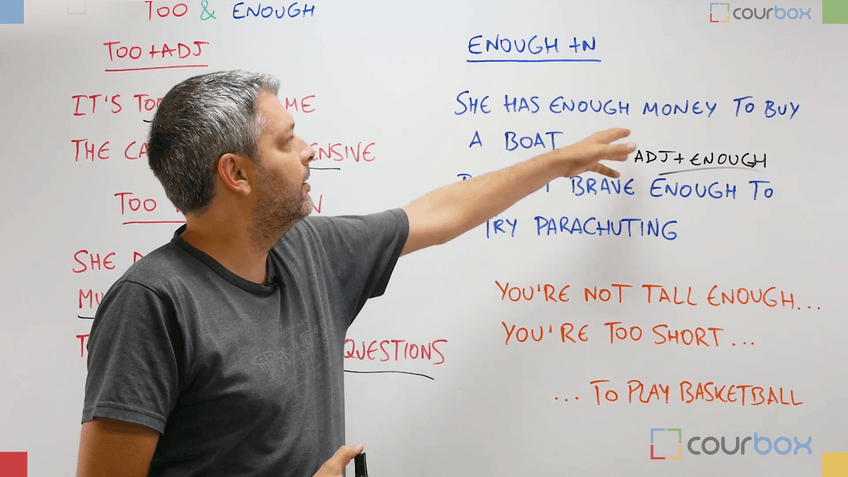 TOO & ENOUGH
courbox
TOO + ADJ
IT'S ME
THE NSIVE
TOO N
SHE
QUESTIONS
ENOUGH + N
SHE HAS ENOUGH MONEY TO BUY
A BOAT
ADJ + ENOUGH
BRAVE ENOUGH TO
TRY PARACHUTING
YOU'RE NOT TALL ENOUGH...
YOU'RE TOO SHORT...
... TO PLAY BASKETBALL
courbox